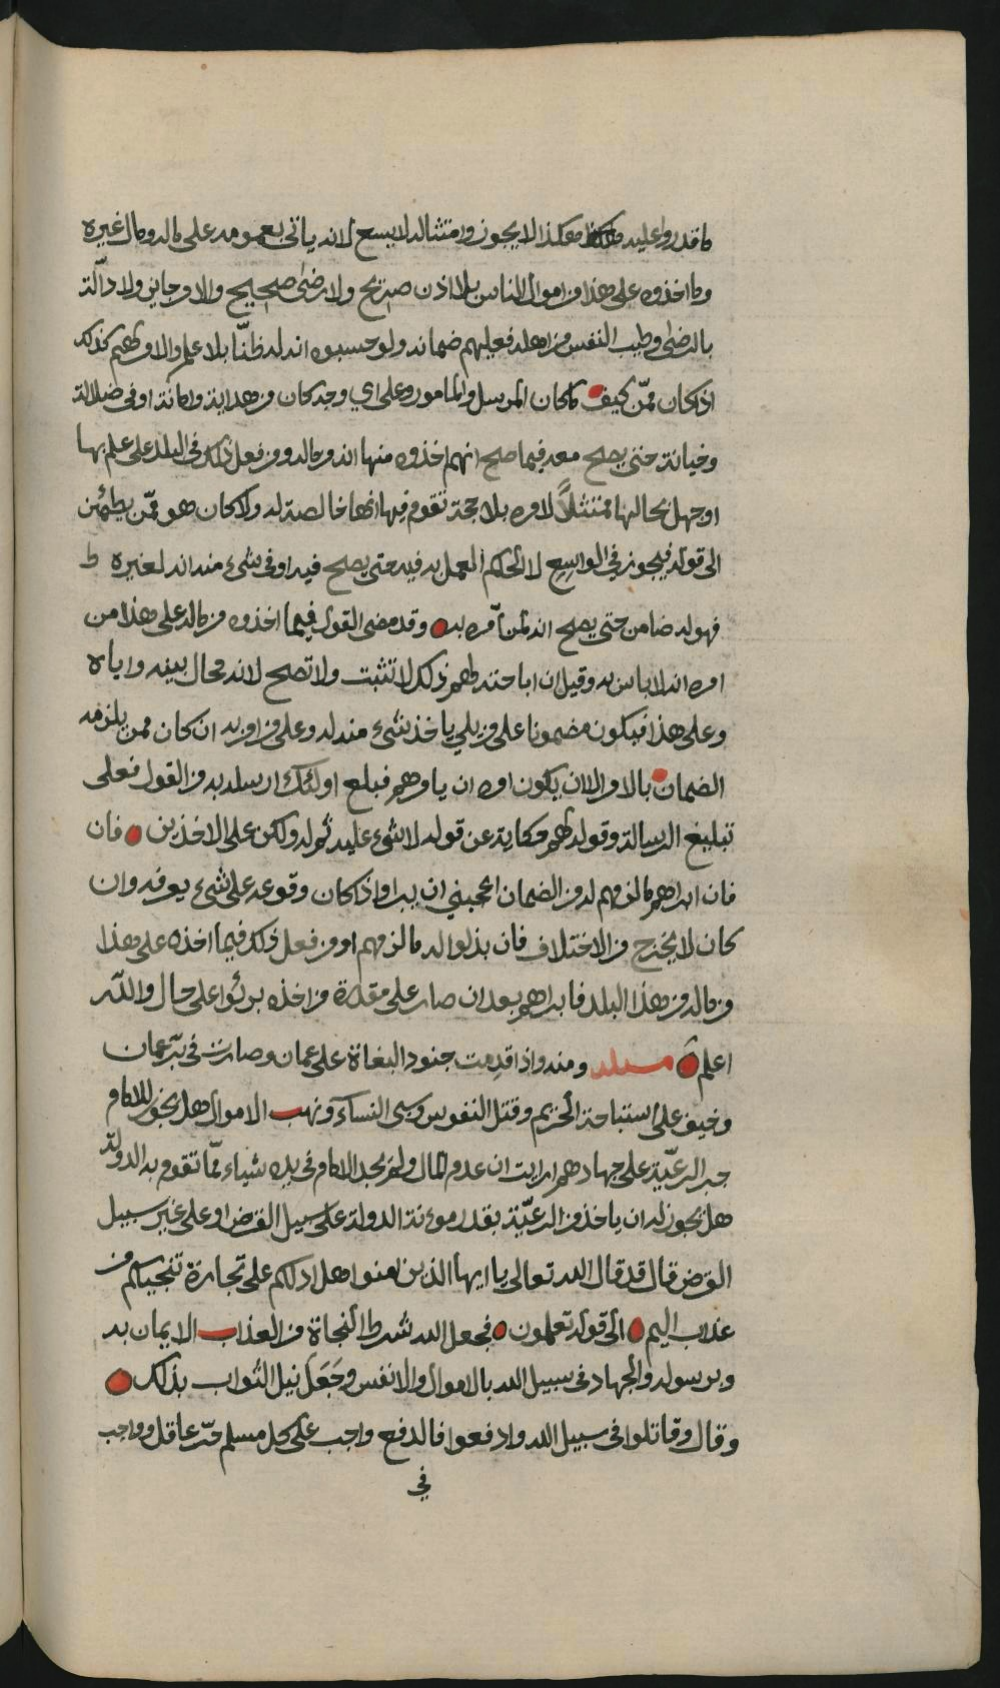 ما قدروا عليه هكذا لا يجوز وامتثاله لا يسع لانه ياتي بعمومه على ماله ومال غيره
وما اخذوه على هذا من اموال الناس بلا اذن صريح ولا رضى صحيح والامر جايز ولا دالّة
بالرضى وطيب النفس من اهله فعليهم ضمانه ولو حسبوه انه له ظنّا بلا علم والامر لهم كذلك
اذ كان ممّن يخيف ما كان المرسل والمامور وعلى اي وجه كان من هداية وامانة او في ضلالة
وخيانة حتى يصلح معه فيما صلح انهم اخذوه منها انه من ماله ومن فعل ذلك في البلد على علم بها
او جهل بحالها ممتثلاً لامره بلا حجة تقوم فيها انها خالصة له والا كان هو ممّن يطمئن
الى قوله فيجوز في الواسِع لا الحكم العمل به فيه حتى يصلح فيه او في شيء منه انه لغيره
فهو له ضامن حتى يصلح انه لمن امره به وقد مضى القول فيما اخذوه من ماله على هذا من
امره انه لا باس به وقيل ان اباحته لهم ذلك لا تثبت ولا تصلح لانه محال بينه واياه
وعلى هذا فيكون مضمونا على من يلي ياخذ شيء منه له وعلى من امر به ان كان ممن يلزمه
الضمان بالامر الا ان يكون امره ان يامرهم فبلغ اولئك ارسله به من القول فعلى
تبليغ الرسالة وقوله لهم حكاية عن قوله لا شيء عليه ثم له ولكن على الاخذين فان
فان ابراهم مالزمهم له من الضمان اعجبني ان يبراوا اذ كان وقوعه على شيء يعرفه وان
كان لا يخرج من الاختلاف فان بذلوا له مالزمهم او من فعل ذلك فيما اخذه على هذا
من ماله من هذا البلد فابراهم بعد ان صار على مقدرة من اخذه برئوا على حال والله
اعلم مسئلة ومنه واذا قدمت جنود البغاة على عمان وصارت في برّ عمان
وخيف على استباحة الحريم وقتل النفوس وسبي النساء ونهب الاموال هل يجوز للامام
جبر الرعيّة على جهادهم ارايت ان عدم المال ولم يجد الامام في يده شياء ممّا تقوم به الدولة
هل يجوز له ان ياخذ من الرعيّة بقدر موءنة الدولة على سبيل القرض او على غير سبيل
القرض قال قد قال الله تعالى يا ايها الذين امنوا هل ادلكم على تجارة تنجيكم من
عذاب اليم الى قوله تعلمون فجعل الله شرط النجاة من العذاب الايمان به
وبرسوله والجهاد في سبيل الله بالاموال والانفس وجَعَلَ نيل الثواب بذلك
وقال وقاتلوا في سبيل الله وادفعوا فالدفع واجب على كل مسلم حرّ عاقل وواجب
في